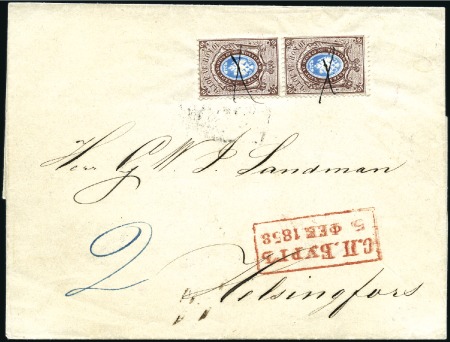 Herr G. W. J. Landman
2
С.П.БУРГЪ
5. ФЕВ.1858
Helsingfors